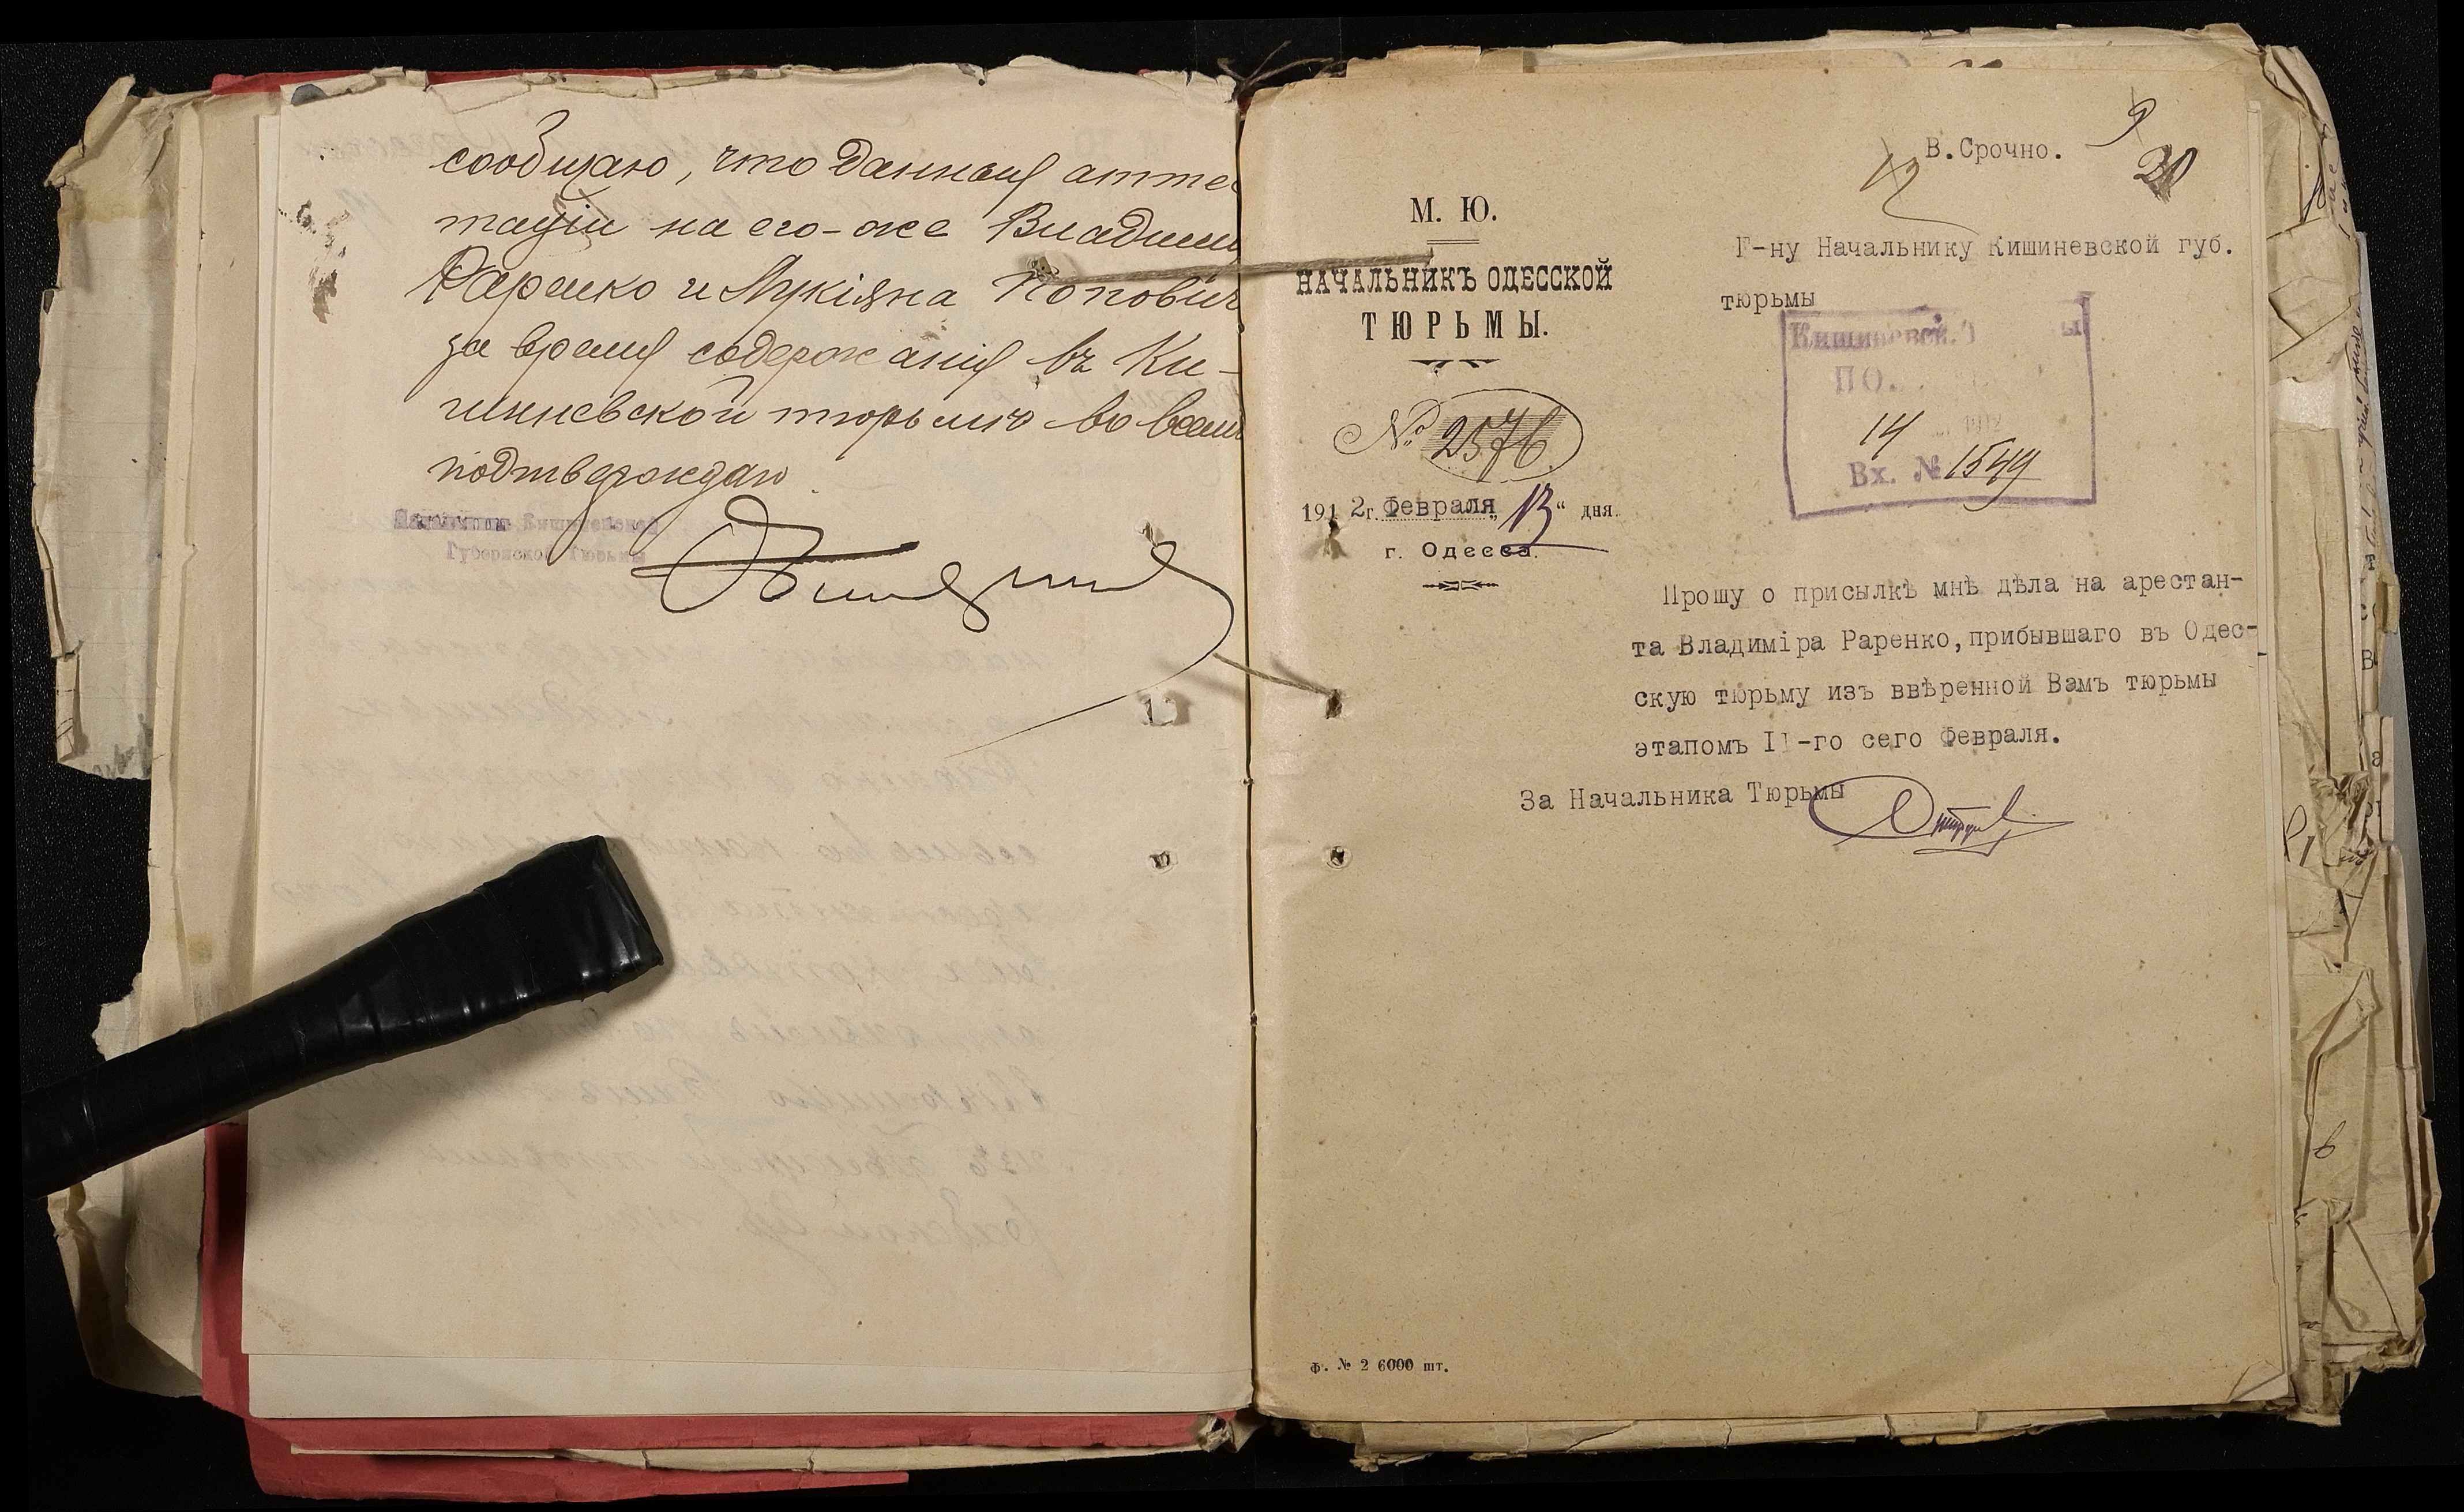 сообщаю, что данныя аттес
таціи на его-же Владимі
Раренко и Лукіяна Попович
за время содержанія въ Ки-
шиневской тюрьмѣ во всемъ
подтверждаю.
Начальникъ Кишиневской
Губернской Тюрьмы
9
В.Срочно.
20
12
М. Ю.
НАЧАЛЬНИКЪ ОДЕССКОЙ
ТЮРЬМЫ.
№ 2576
1912г. Февраля „13“ дня.
г. Одесса.
Г-ну Начальнику Кишиневской губ.
тюрьмы
Кишиневской
ПО
14 1912
Вх. № 1549
Прошу о присылкѣ мнѣ дѣла на арестан-
та Владиміра Раренко, прибывшаго въ Одес-
скую тюрьму изъ ввѣренной Вамъ тюрьмы
этапомъ II-го сего Февраля.
За Начальника Тюрьмы
ф. № 2 6000 шт.